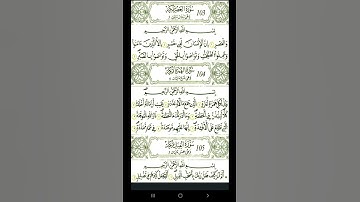 سُورَةُ الْعَصْرِ مَكِّيَّة 103
بِسْمِ اللَّهِ الرَّحْمَٰنِ الرَّحِيمِ
وَالْعَصْرِ إِنَّ الْإِنسَانَ لَفِي خُسْرٍ إِلَّا الَّذِينَ ءَامَنُوا
وَعَمِلُوا الصَّالِحَاتِ وَتَوَاصَوْا بِالْحَقِّ وَتَوَاصَوْا بِالصَّبْرِ
سُورَةُ الْهُمَزَةِ مَكِّيَّة 104
بِسْمِ اللَّهِ الرَّحْمَٰنِ الرَّحِيمِ
وَيْلٌ لِّكُلِّ هُمَزَةٍ لُّمَزَةٍ الَّذِي جَمَعَ مَالًا وَعَدَّدَهُ يَحْسَبُ أَنَّ مَالَهُ أَخْلَدَهُ
كَلَّا لَيُنبَذَنَّ فِي الْحُطَمَةِ وَمَا أَدْرَاكَ مَا الْحُطَمَةُ نَارُ اللَّهِ الْمُوقَدَةُ
الَّتِي تَطَّلِعُ عَلَى الْأَفْئِدَةِ إِنَّهَا عَلَيْهِم مُّؤْصَدَةٌ فِي عَمَدٍ مُّمَدَّدَةٍ
سُورَةُ الْفِيلِ مَكِّيَّة 105
بِسْمِ اللَّهِ الرَّحْمَٰنِ الرَّحِيمِ
أَلَمْ تَرَ كَيْفَ فَعَلَ رَبُّكَ بِأَصْحَابِ الْفِيلِ أَلَمْ يَجْعَلْ كَيْدَهُمْ فِي تَضْلِيلٍ